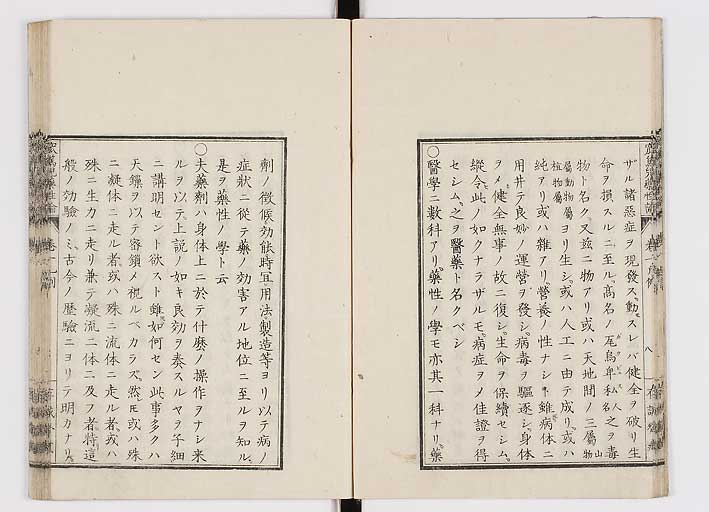 ザル諸惡症ヲ現發ス。動スレバ健全ヲ破リ生
命ヲ損スルニ至ル。高名ノ尾烏卑私名人之ヲ毒
物ト名ク。又茲ニ物アリ或ハ天地間ノ三屬山物
屬動物屬植物屬ヨリ生シ。或ハ人工ニ由テ成リ。或ハ
純アリ或ハ雜アリ。營養ノ性ナシ𪜈雖病体ニ
用井テ良妙ノ運營ヲ發シ。病毒ヲ驅逐シ。身体
ヲメ健全無事ノ故ニ復シ。生命ヲ保續セシム。
縱令此ノ如クナラザルモ。病症ヲメ佳證ヲ得
セシム。之ヲ醫藥ト名クベシ
○醫學ニ數科アリ。藥性ノ學モ亦其一科ナリ。藥
劑ノ徵候効能時宜用法製造等ヨリ以テ病ノ
症狀ニ從テ藥ノ効害アル地位ニ至ルヲ知ル。
是ヲ藥性ノ學ト云
○夫藥劑ハ身体上ニ於テ什麼ノ操作ヲナシ來
ルヲ以テ。上説ノ如キ良効ヲ奏スルヤヲ仔細
ニ講明セント欲スト雖如何セン此事多クハ
天鑰ヲ以テ密鎖メ視ルベカラズ。然𪜈或ハ殊
ニ凝体ニ走ル者或ハ殊ニ流体ニ走ル者。或ハ
殊ニ生力ニ走リ兼テ凝流二体ニ及フ者將這
般ノ効驗ノミ。古今ノ歷驗ニヨリテ明カナリ。